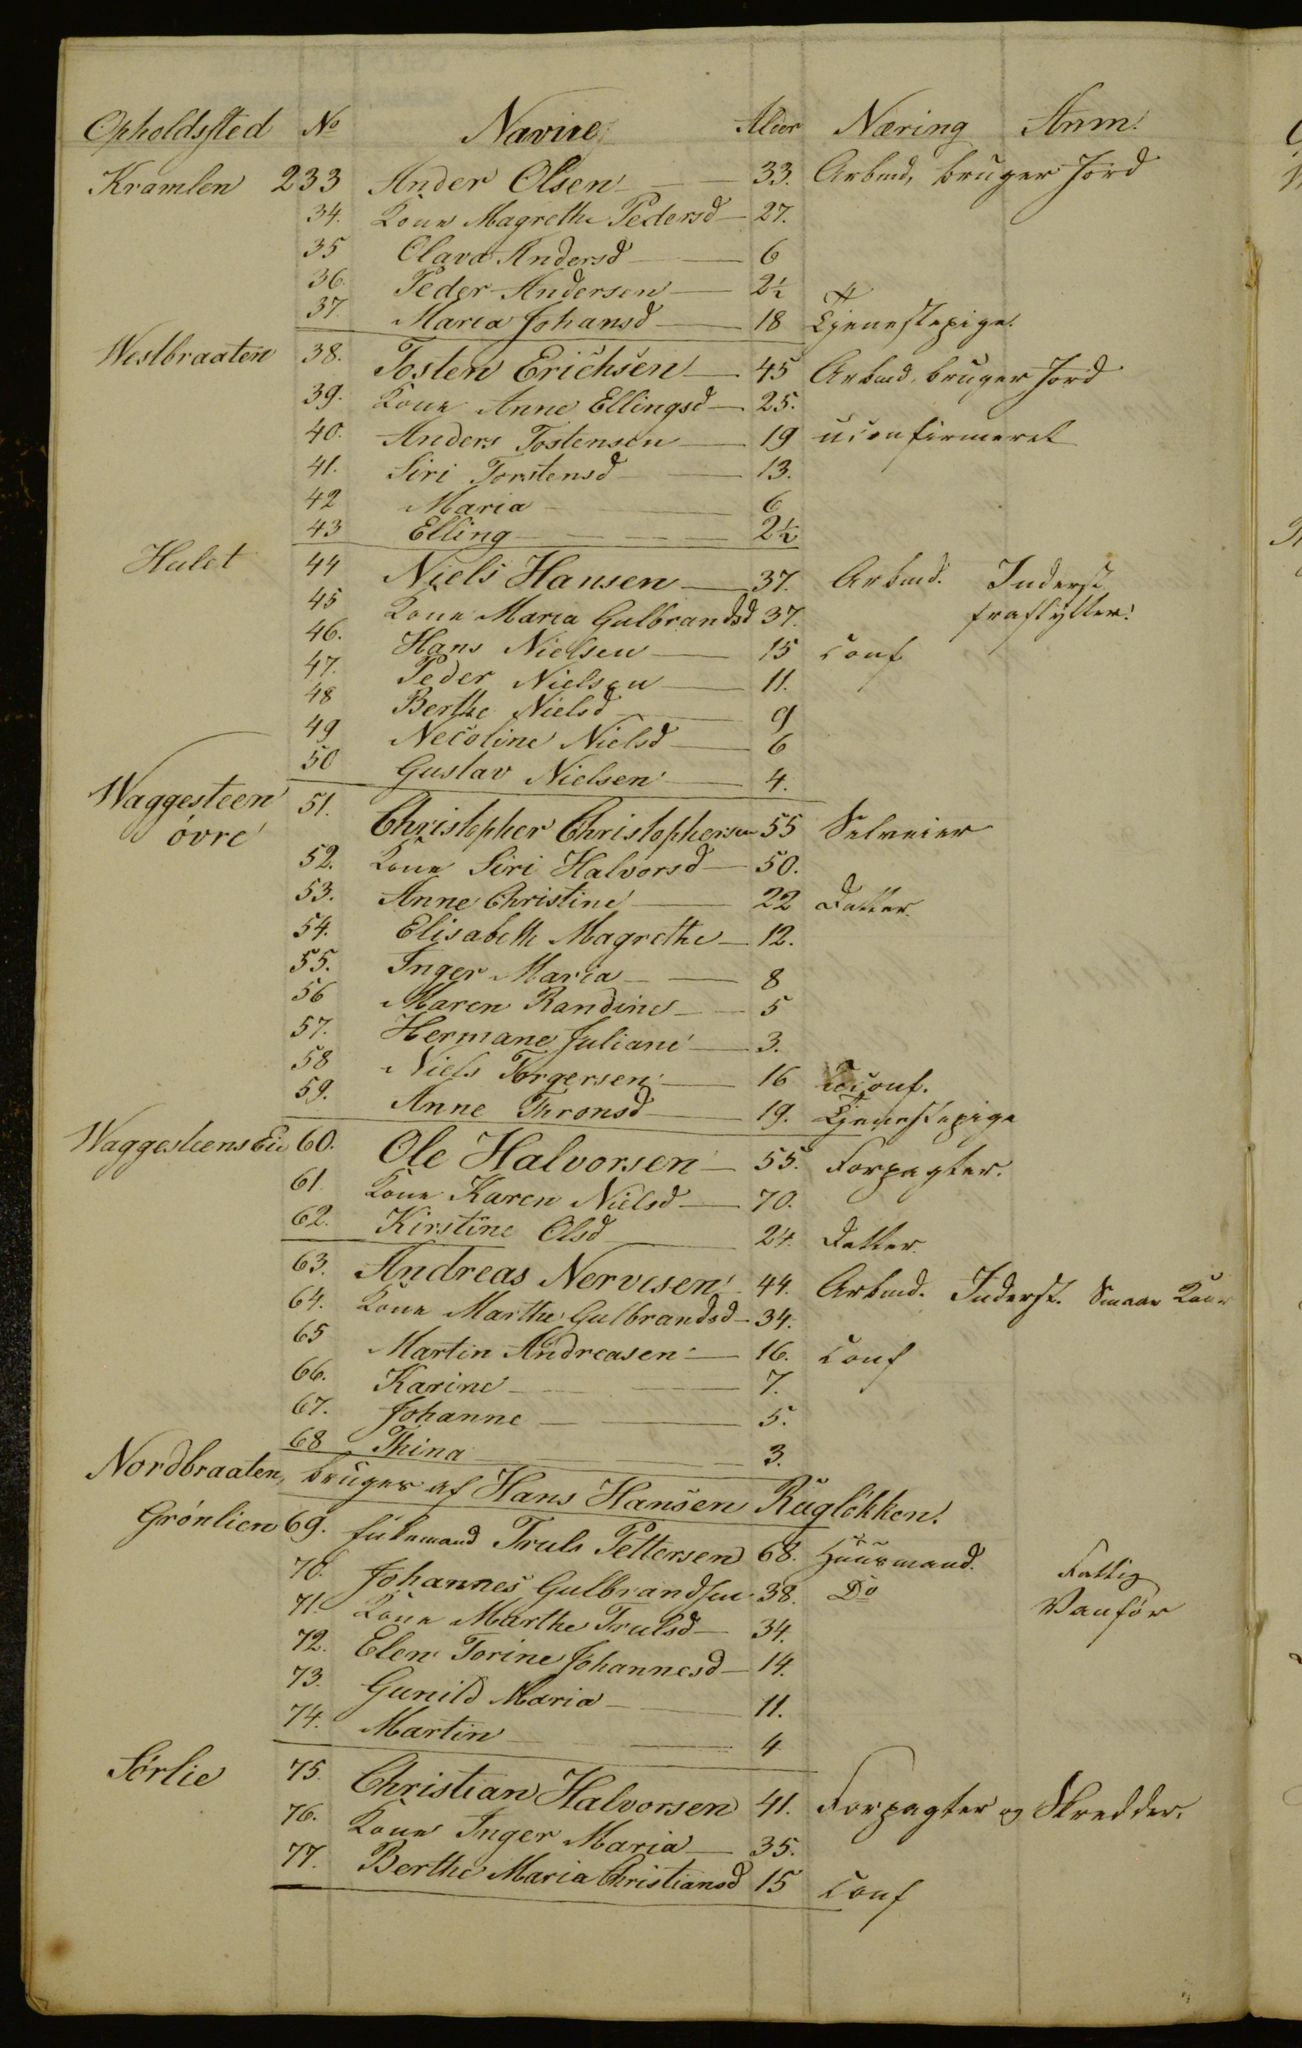 Opholdssted No Navne Alder Næring Anm:
Kramlen 233 Ander Olsen 33. Arbmd, bruger Jord
34. Kone Magrethe Pedersd 27.
35 Olava Andersd 6
36. Peder Andersen 2½
37. Maria Johansd 18 Tjenestepige.
Westbraaten 38. Tosten Erichsen 45 Arbmd. bruger Jord
39. Kone Anne Ellingsd 25.
40. Anders Tostensen 19 uconfirmeret
41. Siri Torstensd 13.
42 Maria 6
43 Elling 2½
Hulet 44 Niels Hansen 37. Arbmd. Inderst,
45 Kone Maria Gulbrandsd 37. fraflytter!
46. Hans Nielsen 15 conf
47. Peder Nielsen 11.
48 Berthe Nielsd 9
49 Necoline Nielsd 6
50 Gustav Nielsen 4.
Waggesteen 51. Christopher Christophersen 55 Selveier
övre
52. Kone Siri Halvorsd 50.
53. Anne Christine 22 Datter
54. Elisabeth Magrethe 12.
55. Inger Maria 8
56 Maren Randine 5
57. Hermane Juliane 3.
58 Niels Torgersen 16 uconf.
59. Anne Thronsd 19. Tjenestepige
Waggesteens Eie 60. Ole Halvorsen 55. Forpagter.
61. Kone Karen Nielsd 70.
62. Kirstine Olsd 24. Datter
63. Andreas Nervesen 44. Arbmd. Inderst. Smaae Kaar
64. Kone Marthe Gulbrandsd 34.
65 Martin Andreasen 16. conf
66. Karine 7.
67. Johanne 5.
68 Thina 3.
Nordbraaten, bruges af Hans Hansen Rüglökken.
Grönlien 69. Enkemand Truls Pettersen 68. Huusmand. Fattig
70. Johannes Gulbrandsen 38. Do Vanför
71. Kone Marthe Trulsd 34.
72. Elen Torine Johannesd 14.
73. Gunild Maria 11.
74. Martin 4
Sörlie 75. Christian Halvorsen 41. Forpagter og Skredder.
76. Kone Inger Maria 35.
77. Berthe Maria Christiansd 15 conf